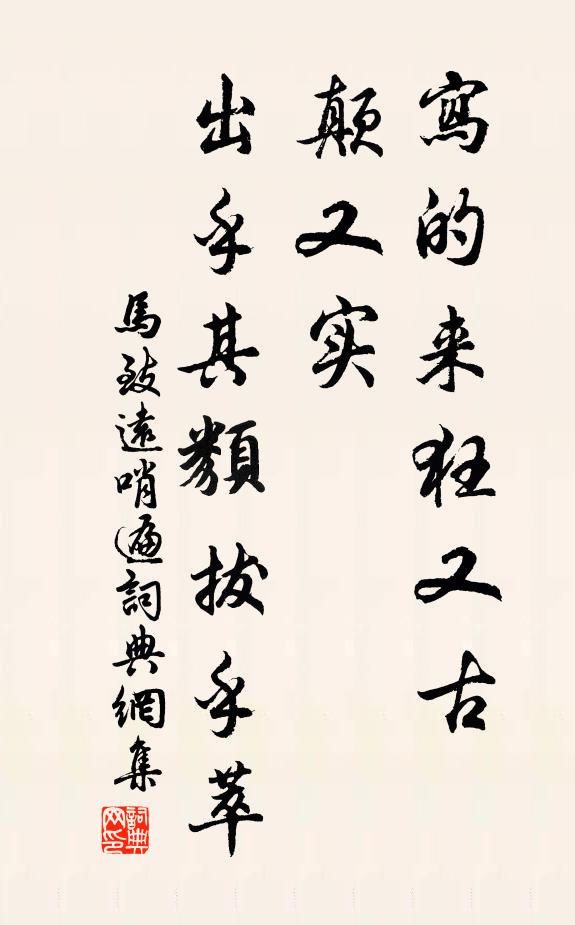 寫的来狂又古
颠又实
出乎其類拔乎萃
馬致遠哨遍詞典網集
詞典
网印